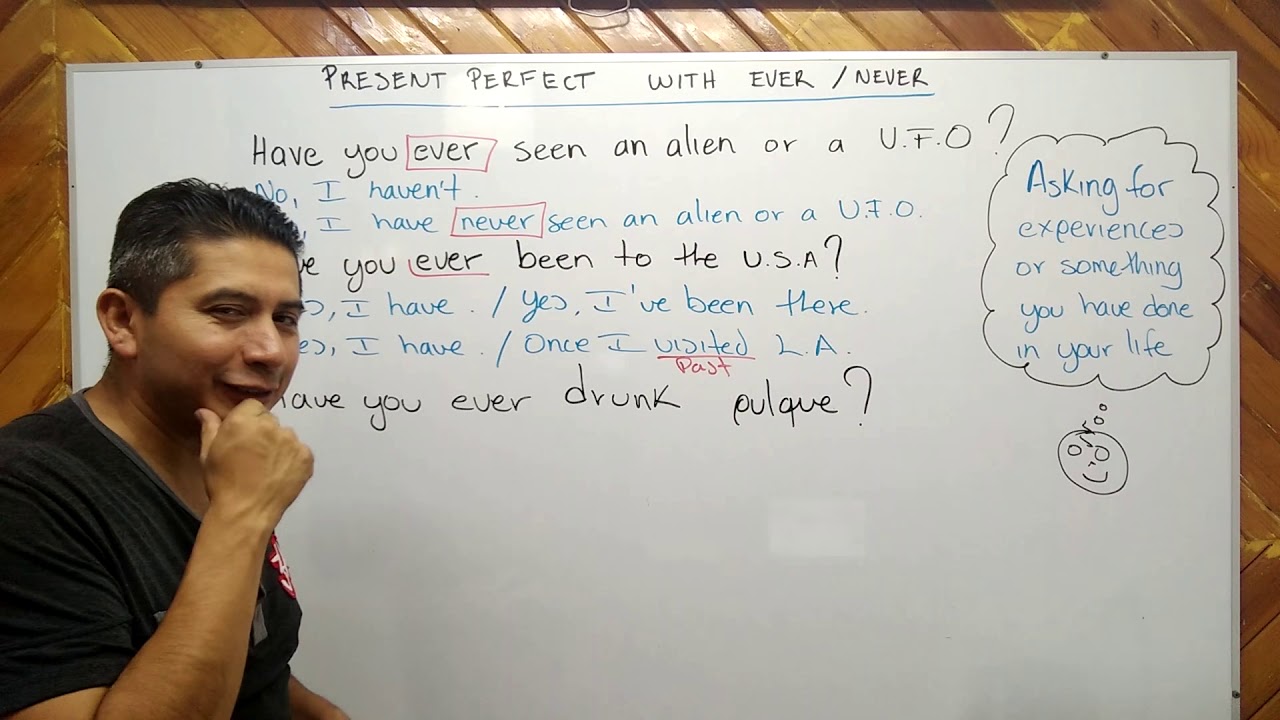 PRESENT PERFECT WITH EVER / NEVER
Have you ever seen an alien or a U.F.O ?
No, I haven't.
, I have never seen an alien or a U.F.O.
you ever been to the U.S.A?
, I have. / Yes, I've been there.
, I have. / Once I visited L.A.
Past
have you ever drunk pulque?
Asking for
experiences
or something
you have done
in your life